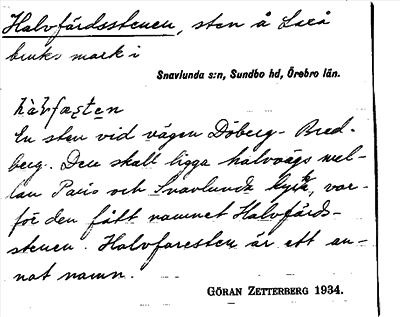 Halvfärdsstenen, sten å Laxå
bruks mark i
Snavlunda s:n, Sundbo hd, Örebro län.
En sten vid vägen Döberg - Bred-
berg. Den skall ligga halvvägs mel-
lan och Snavlunda kyrka, var-
för den fått namnet Halvfärds-
stenen. Halvfaresten är ett an-
nat namn.
GÖRAN ZETTERBERG 1934.